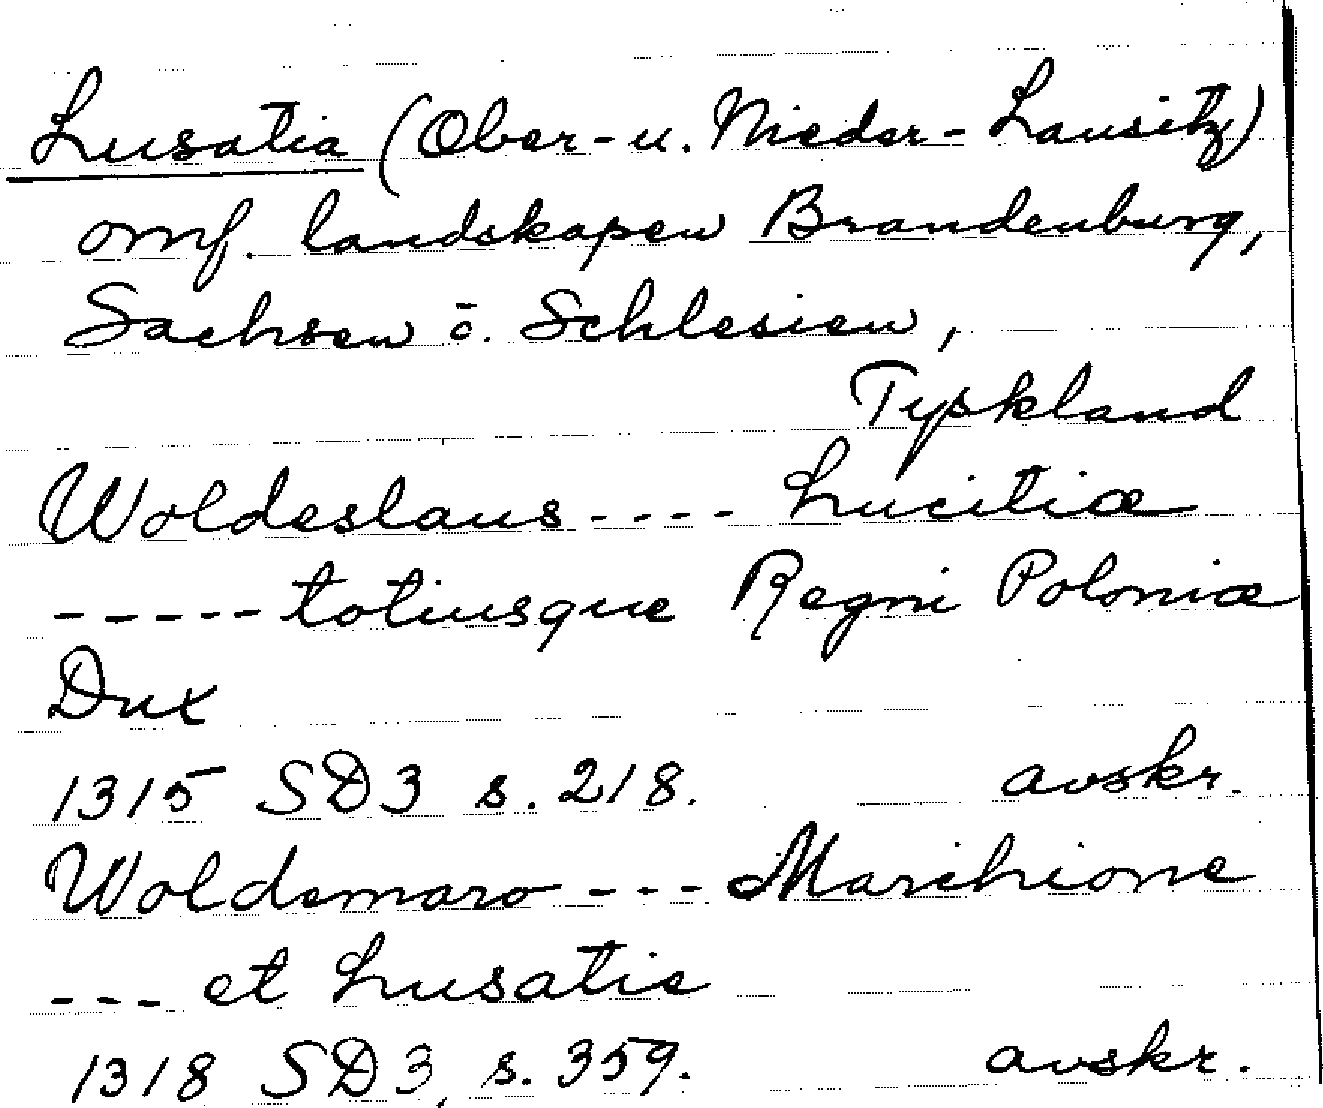 Lusatia (Ober-u. Nieder-Lausitz)
omf. landskapen Brandenburg,
Sachsen o. Schlesien,
Tyskland
Woldeslaus ---- Lucitiæ
----- totiusque Regni Poloniæ
Dux
1315 SD3 s. 218. avskr.
Woldemaro --- Marchione
--- et Lusatie
1318 SD3, s. 359. avskr.